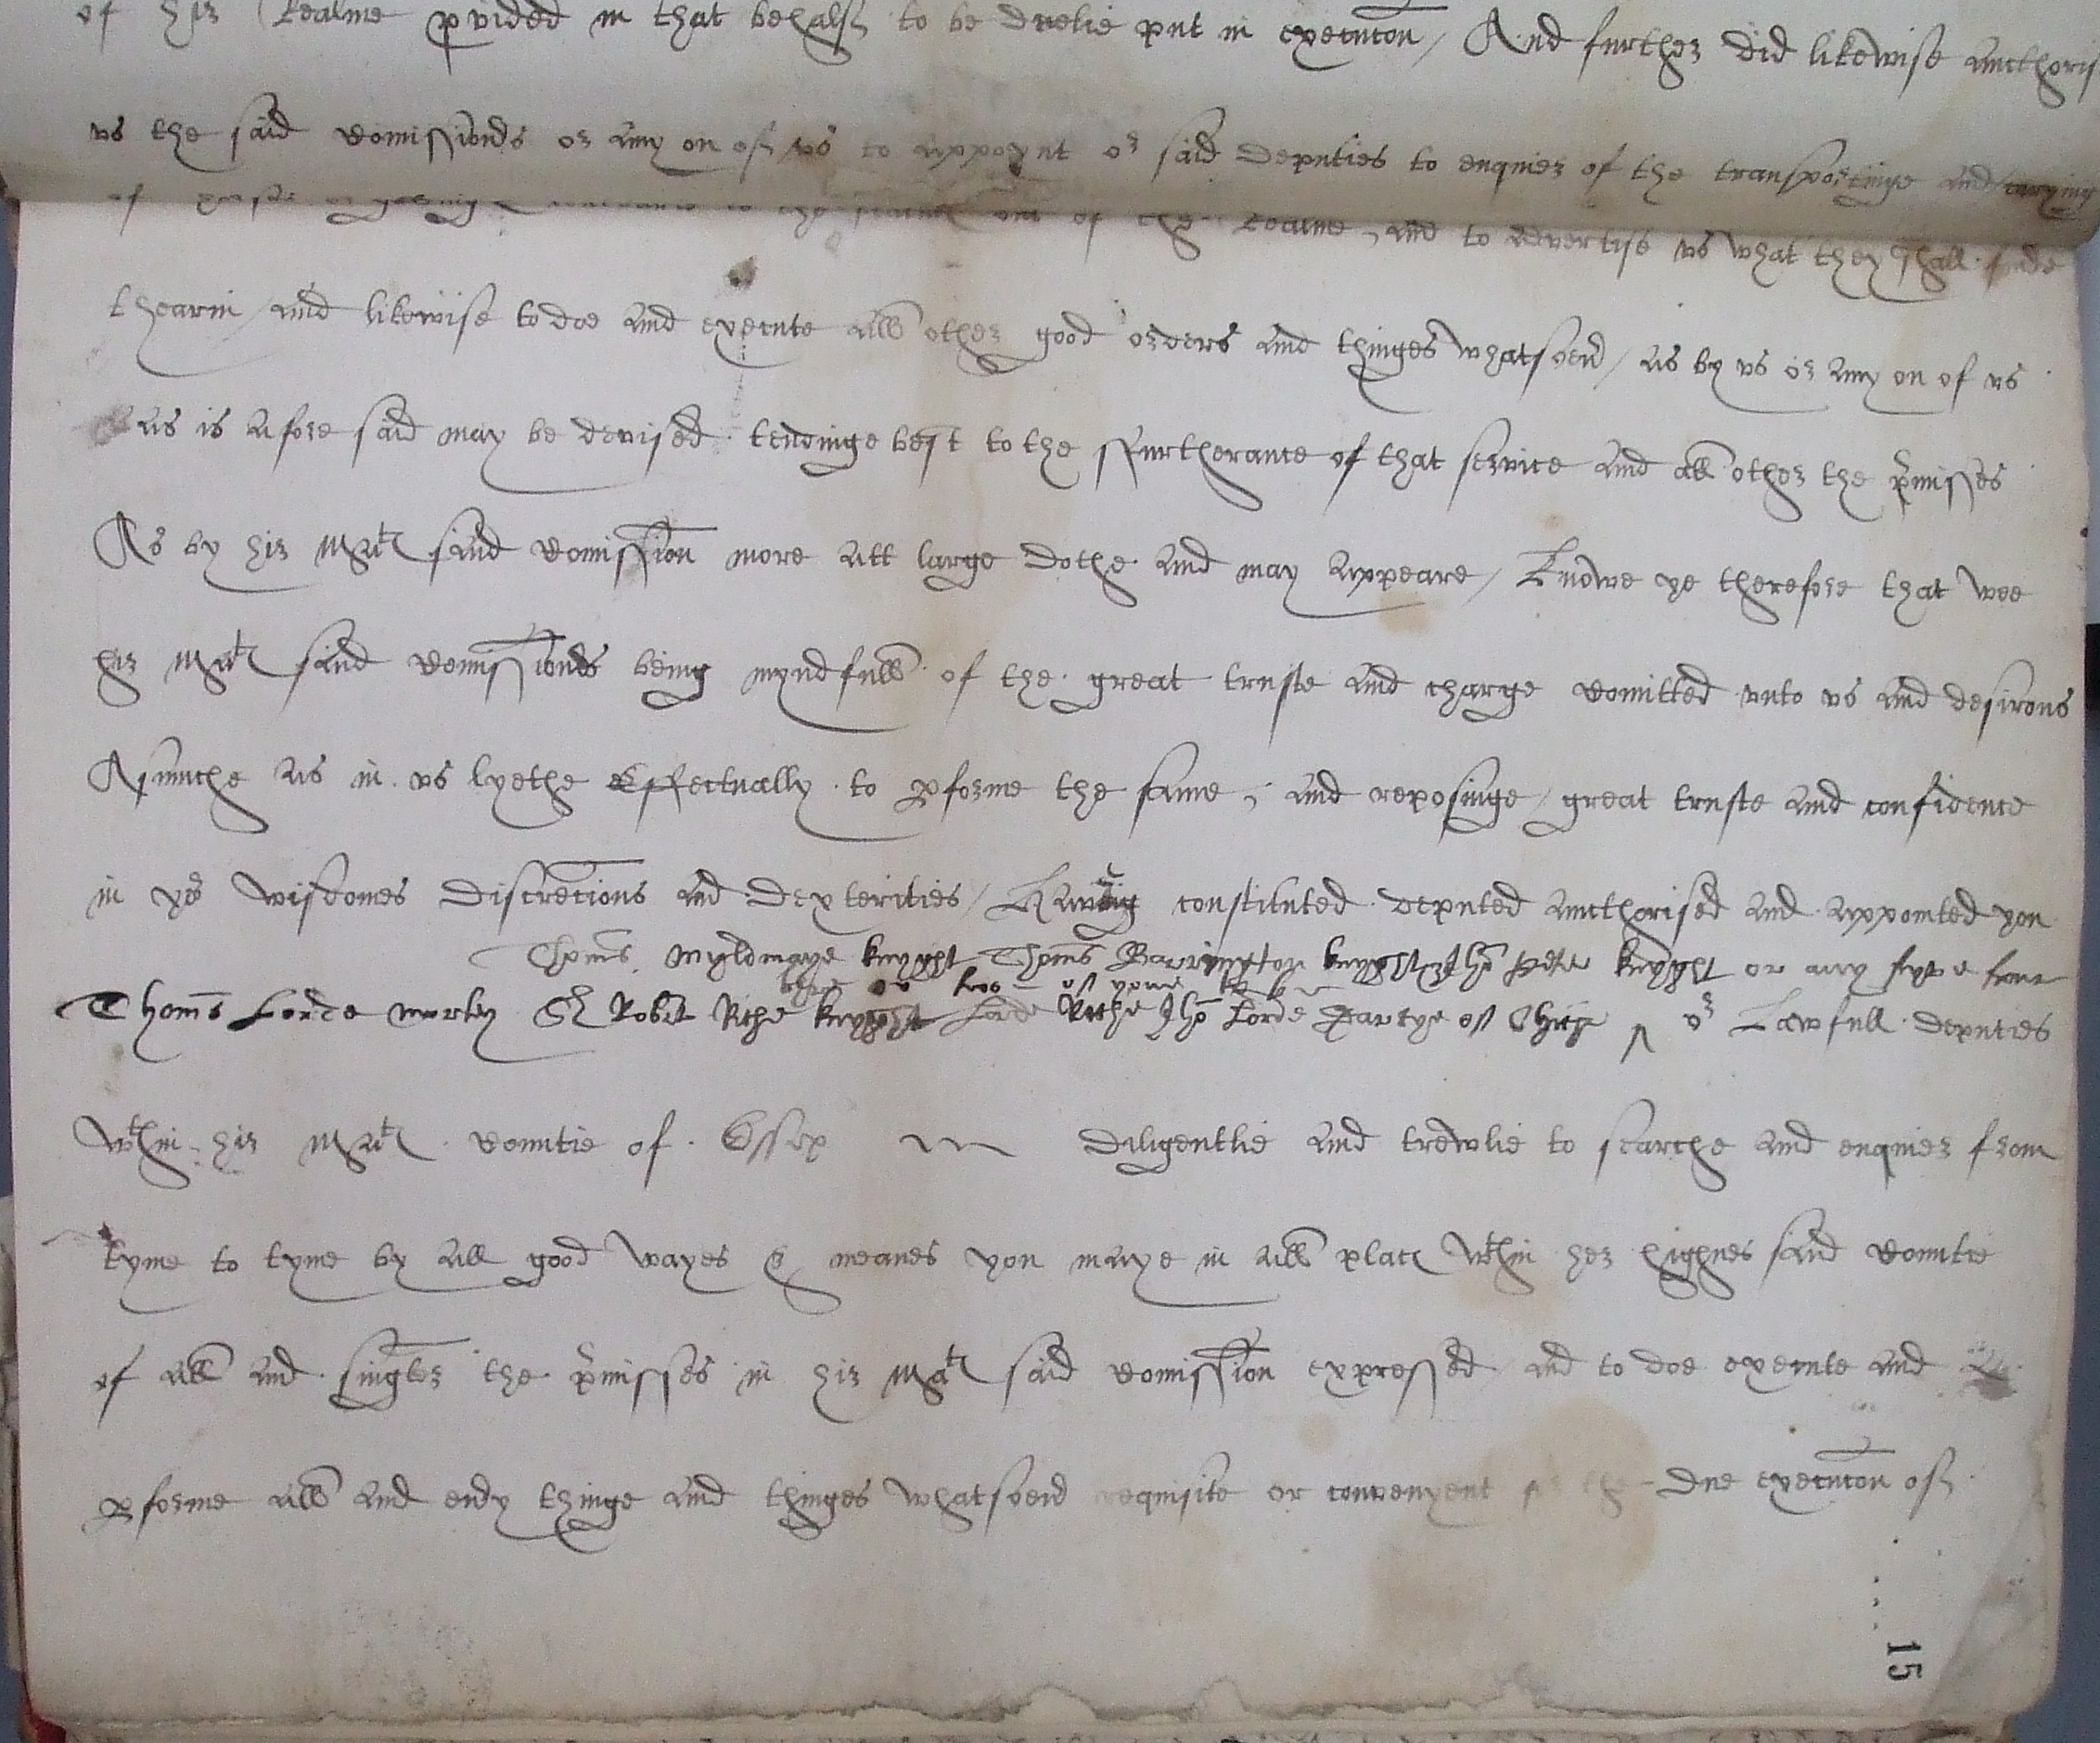 of his Realme pvided in that behalf to be duelie put in execucon / And further did likewise aucthoris
us the said Comissionrs or any on of us to appoynt or said deputies to enquier of the transportinge and carying
of horses or geldings contrarie to the statut out of the Realme, and to advertise us what they shall finde
thearin / and likewise to doe and execute all other good orders and thinges whatsoevr / as by us or any on of us
as is afore said may be devised tendinge best to the ffurtherance of that service and all other the pmisses
As by hir Matƺ said Comission more att large dothe and may appeare / Knowe ye therefore that wee
hir Matƺ said Comissionrs being myndfull of the great truste and charge Comitted unto us and desirous
Asmuche as in us lyethe Effectually to pforme the same, and reposinge / great truste and confidence
in yor Wisdomes discrecions and dexterities / Have constituted deputed aucthorised and appointed you
Thoms Myldmaye knyght Thoms Barrington knyght Iho Peter knyght or any fyve four
thre or two of youe
Thoms Lorde Morley Sr Robt Riche knyght Lorde Riche Iho Lorde Darcye of Chiche or Lawfull deputies
Wthin hir Matƺ Countie of Essex diligentlie and trewlie to searche and enquier from
tyme to tyme by all good wayes & meanes you maye in all placƺ Wthin her highnes said Countie
of all and singler the pmisses in hir Matƺ said Comission expressed and to doe execute and
pforme all and evry thinge and thinges whatsoevr requisite or convenyent for the due execucon of
15